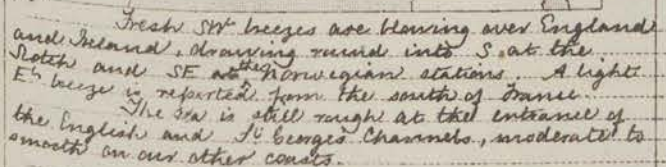 Fresh SWly breezes are blowing over England
and Ireland, drawing round into S. at the
Scotch and SE at the Norwegian stations. A light
Ely breeze is reported from the south of France.
The sea is still rough at the entrance of
the English and St George's Channels, moderate to
smooth on our other coasts.